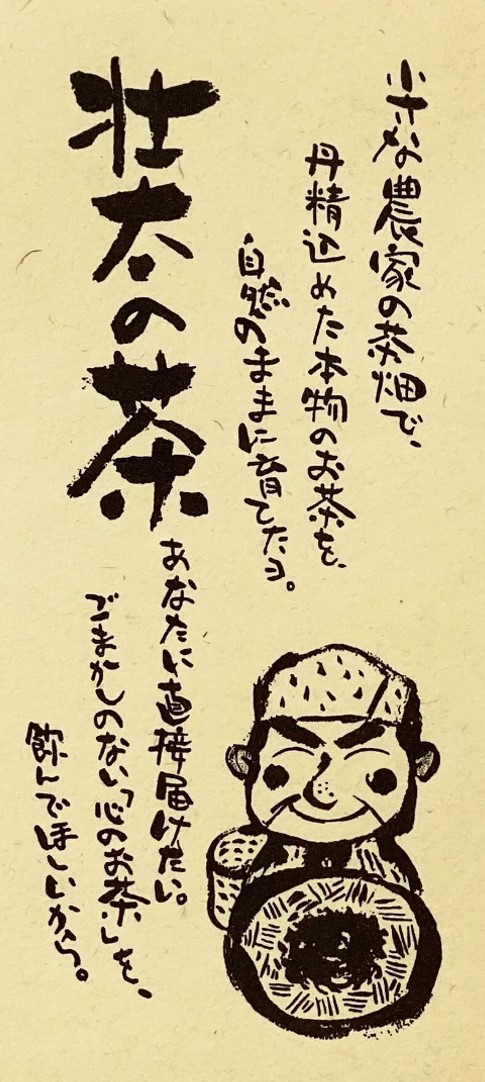 小さな農家の茶畑で、
丹精込めた本物のお茶を、
自然のままに育てたヨ。
壮太の茶
あなたに直接届けたい。
ごまかしのない「心のお茶」を、
飲んでほしいから。